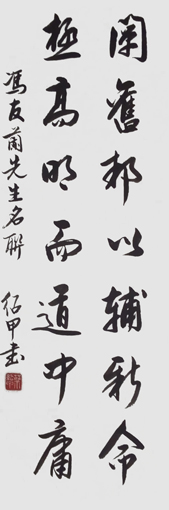 阐旧邦以辅新命
極高明而道中庸
馮友蘭先生名聯
紹甲書